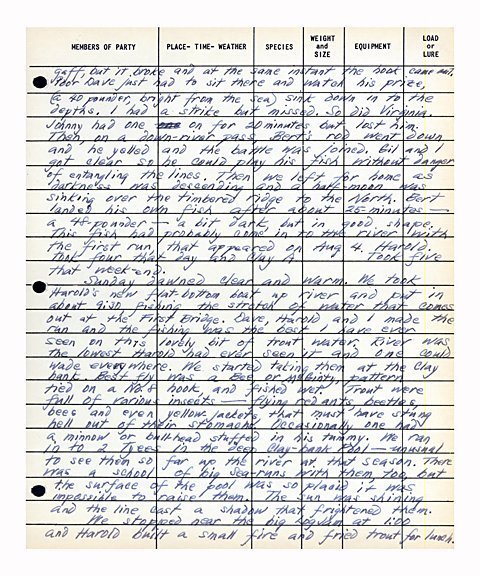 MEMBERS OF PARTY PLACE- TIME- WEATHER SPECIES WEIGHT and SIZE EQUIPMENT LOAD or LURE
gaff, but it broke and at the same instant the hook came out.
Poor Dave just had to sit there and watch his prize,
(a 40 pounder, bright from the sea) sink down in to the
depths. I had a strike but missed. So did Virginia.
Johnny had one on for 20 minutes but lost him.
Then, on a down-river pass Bert's rod went down
and he yelled and the battle was joined. Gil and I
got clear so he could play his fish without danger
of entangling the lines. Then we left for home as
darkness was descending and a half-moon was
sinking over the timbered ridge to the North. Bert
landed his own fish after about 25 minutes —
a 48-pounder — a bit dark but in good shape.
This fish had probably come in to the river with
the first run, that appeared on Aug 4. Harold
took four that day and Clay A. Took five
that week-end.
Sunday dawned clear and warm. We took
Harold's new flat bottom boat up river and put in
about 9:30 fishing the stretch of water that comes
out at the First Bridge. Dave, Harold and I made the
run and the fishing was the best I have ever
seen on this lovely bit of trout water. River was
the lowest Harold had ever seen it and one could
wade everywhere. We started taking them at the Clay
bank. Best fly was a Bee or McGinty pattern
tied on a No. 8 hook and fished wet. Trout were
full of various insects — flying red ants, beetles,
bees and even yellow jackets, that must have stung
hell out of their stomachs. Occasionally one had
a minnow or bullhead stuffed in his tummy. We ran
in to 2 Tyees in the deep Clay-bank Pool — unusual
to see them so far up the river at this season. There
was a school of big sea-runs with them too but
the surface of the pool was so placid it was
impossible to raise them. The sun was shining
and the line cast a shadow that frightened them.
We stopped near the big logjam at 1:00
and Harold built a small fire and fried trout for lunch.